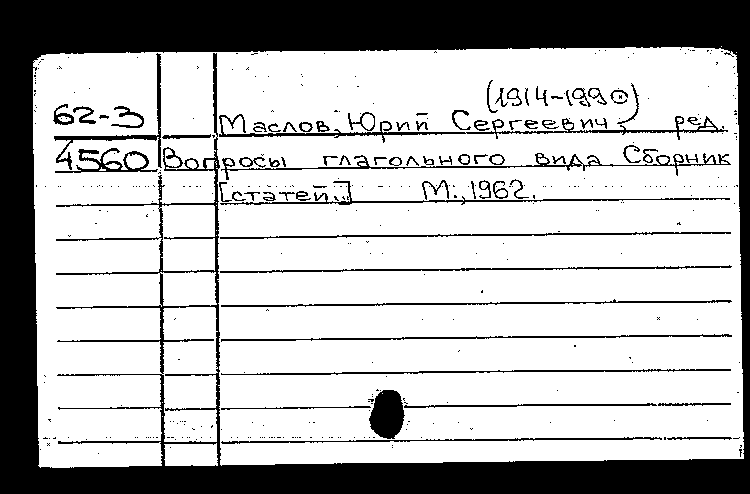 (1914-1990)
62-3 Маслов, Юрий Сергеевич, ред.
4560 Вопросы глагольного вида. Сборник
[статей.] М., 1962.